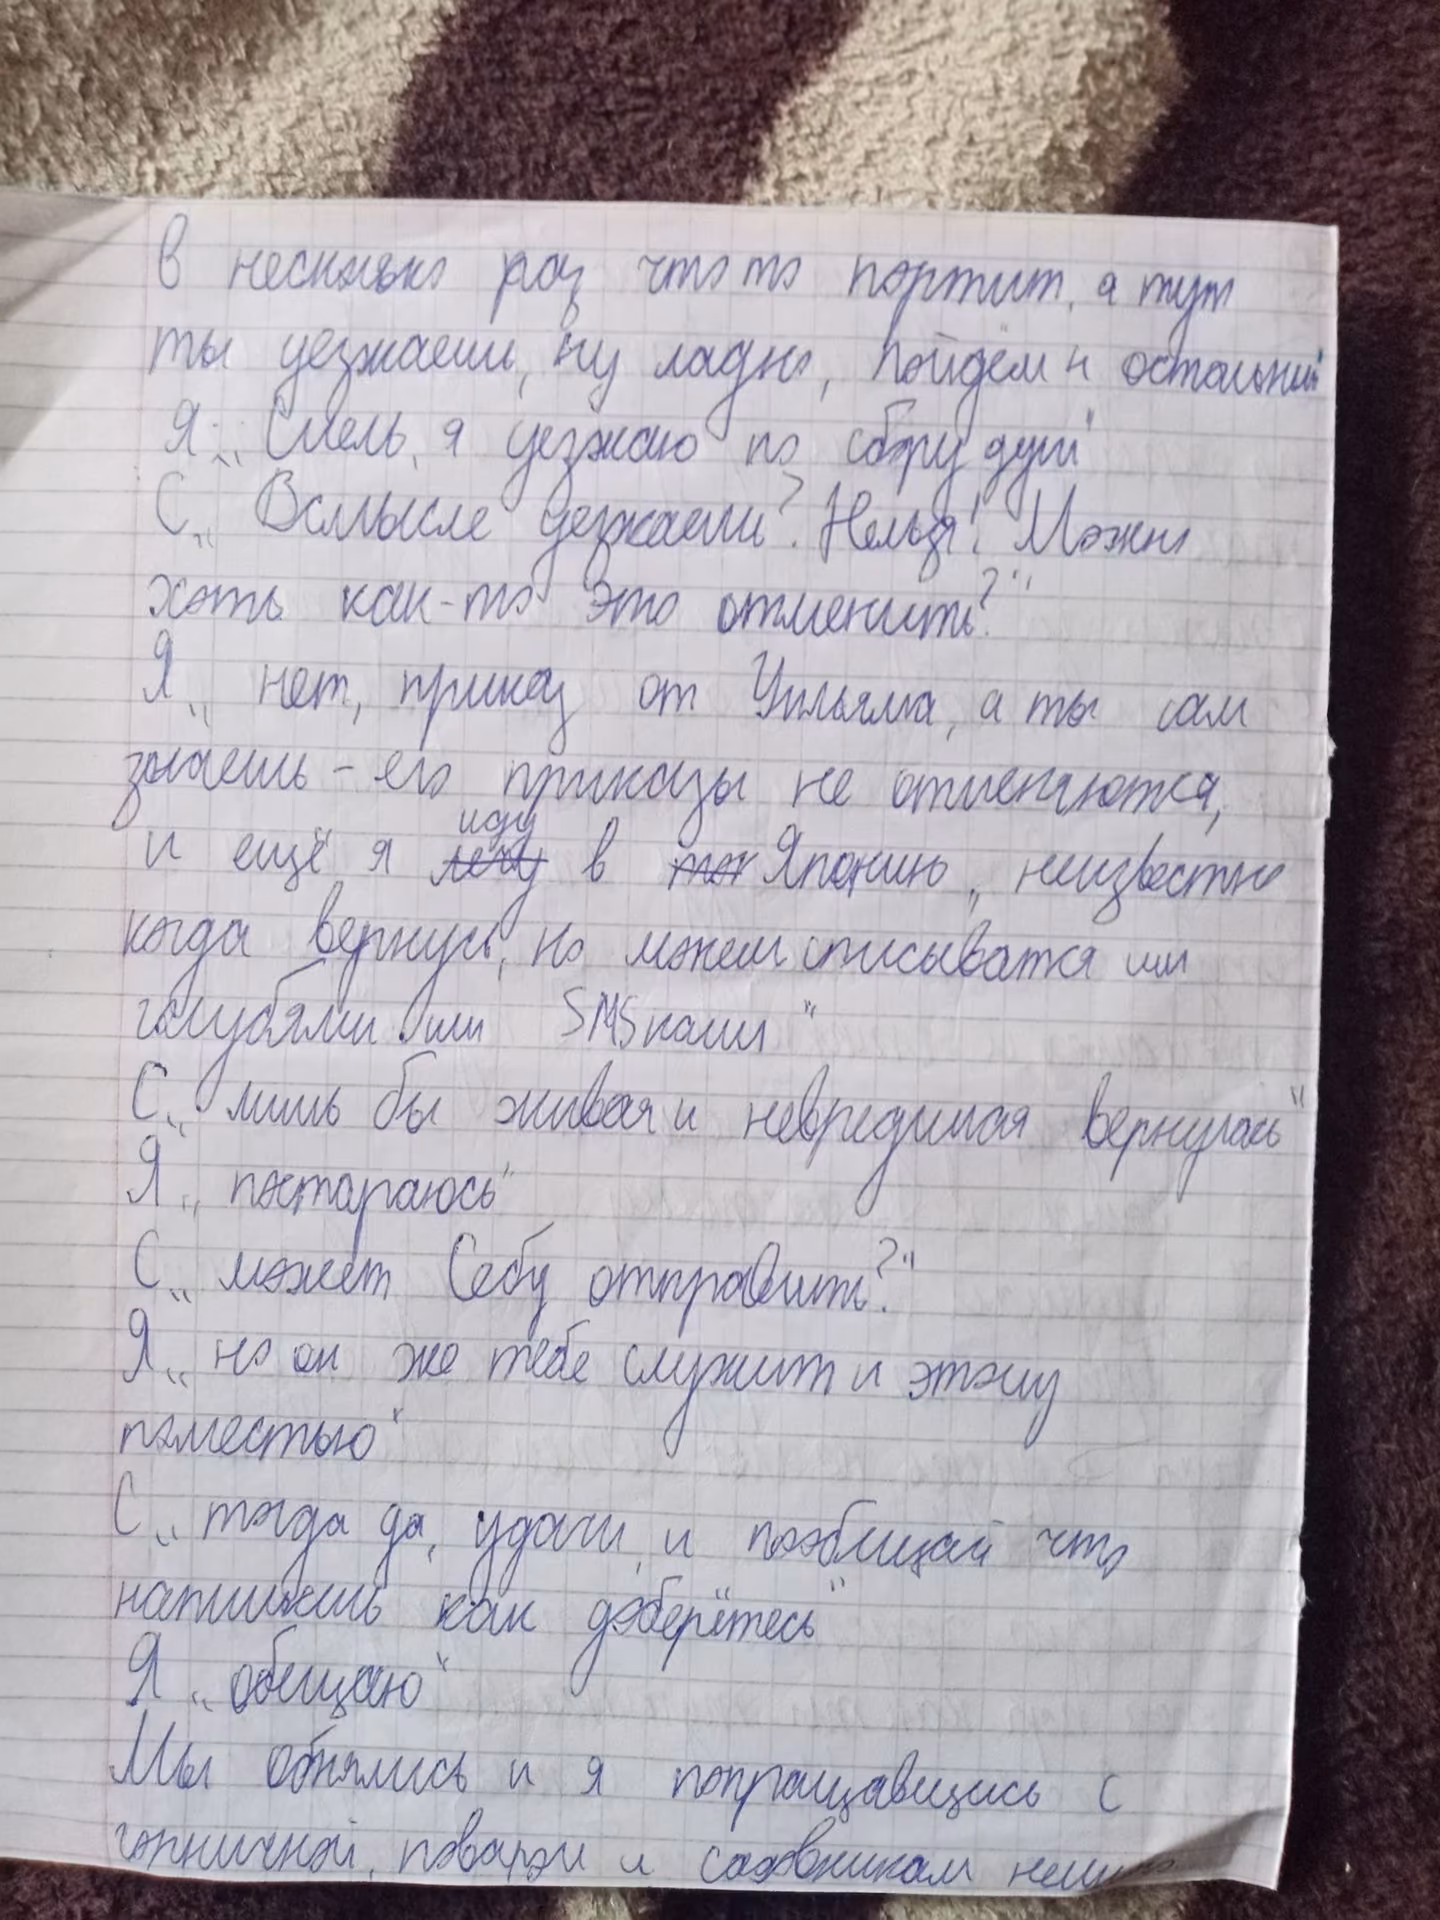 в несколько раз что то портит, а тут
ты уезжаеш, ну ладно, пойдём к остальным"
Я: „ Сиель, я уезжаю по сбору душ"
С „ Всмысле уезжаеш? Нельзя! Можно
хоть как-то это отменить?"
Я „ нет, приказ от Уильяма, а ты сам
знаешь - его приказы не отменяются,
и ещё я иду в Японию, неизвестно
когда вернусь, но можем списыватся или
голубями или SMSками"
С „ лишь бы живая и невредимая вернулась"
Я „ постараюсь"
С „ может Себу отправить?"
Я „ но он же тебе служит и этому
поместью"
С „ тогда да, удачи, и пообещай что
напишешь как доберётесь"
Я „ обещаю"
Мы обнялись и я попращавшись с
горничной, поваром и садовником